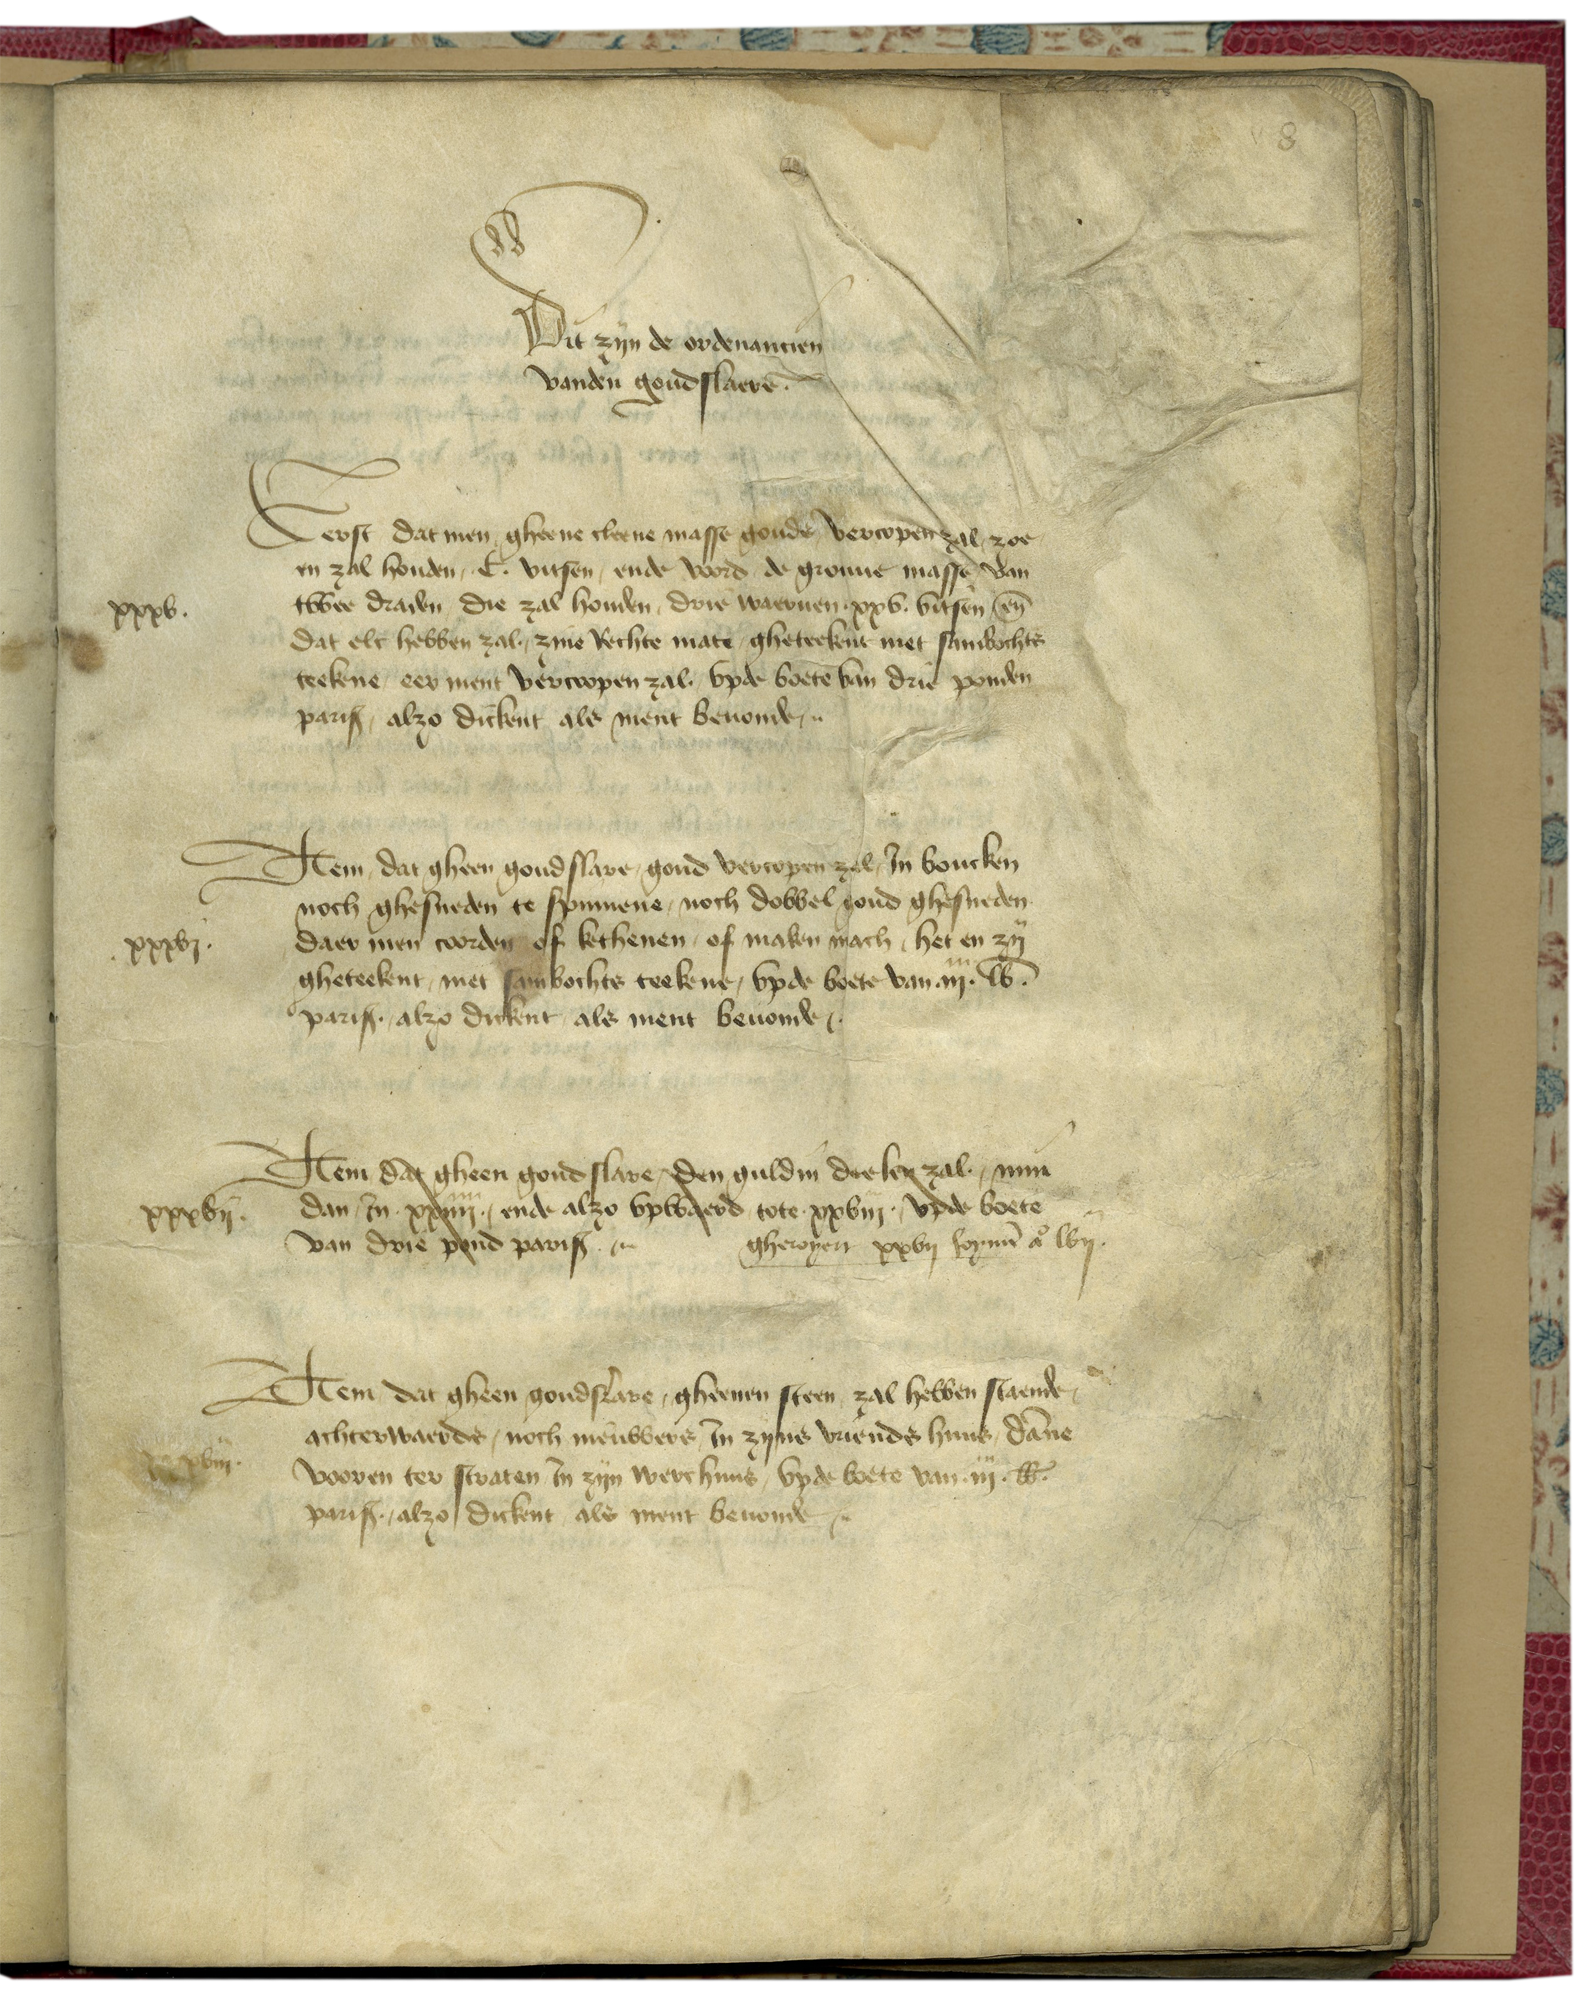 8
Dit zijn de ordenancien
vanden goudslaers.
Eerst dat men gheene cleene masse gouds vercopen zal, zoe
en zal houden .C. vitsen, ende voord de groune masse van
twee draden, die zal houden, drie waeruen xxv. vitsen en̄
xxxv.
dat elc hebben zal, zine Rechte mate, gheteekent met sambochts
teekene, eer ment vercoopen zal, vpde boete van drie ponden
paris, alzo dickent als ment beuonde
Item, dat gheen goudslare, goud vercopen zal, In boucken
noch ghesneden te spinnene, noch dobbel goud ghesneden
daer men coorden of kethenen, of maken mach, het en zij
xxxvj.
gheteekent, met sambochts teekene, vpde boete van .iij. lb.
paris. alzo dickent als ment beuonde
Item dat gheen goudslare, den guldin deelen zal, min
dan, In xxiiij, ende alzo vpwaerd tote xxviij, vpde boete
xxxvij.
van drie pond paris.
gheroyert xxvij a° lvij.
Item dat gheen goudslare, gheenen steen, zal hebben staende,
achterwaerds, noch nieuwers, In zijns vriends huus, dāne
vooren ter straten In zijn werchuus, vpde boete van .iij. lb.
xxxviij.
paris. alzo dickent als ment beuonde